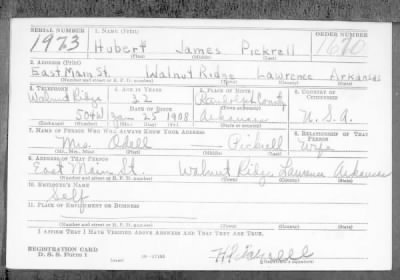 SERIAL NUMBER 1. NAME (Print) ORDER NUMBER
1973 Hubert James Pickrell 1670
(First) (Middle) (Last)
2. ADDRESS (Print)
East Main St. Walnut Ridge Lawrence Arkansas
(Number and street or R. F. D. number) (Town) (County) (State)
3. TELEPHONE 4. AGE IN YEARS 5. PLACE OF BIRTH 6. COUNTRY OF CITIZENSHIP
Walnut Ridge Randolph County
DATE OF BIRTH
504W Jan 25 1908 Arkansas U.S.A.
(Exchange) (Number) (Mo.) (Day) (Yr.) (State or country)
7. NAME OF PERSON WHO WILL ALWAYS KNOW YOUR ADDRESS 8. RELATIONSHIP OF THAT PERSON
Mrs. Odell Pickrell Wife
(Mr., Mrs., Miss) (First) (Middle) (Last)
9. ADDRESS OF THAT PERSON
East Main St. Walnut Ridge Lawrence Arkansas
(Number and street or R. F. D. number) (Town) (County) (State)
10. EMPLOYER'S NAME
Self
11. PLACE OF EMPLOYMENT OR BUSINESS
(Number and street or R. F. D. number) (Town) (County) (State)
I AFFIRM THAT I HAVE VERIFIED ABOVE ANSWERS AND THAT THEY ARE TRUE.
REGISTRATION CARD
D. S. S. Form 1
(Registrant's signature)